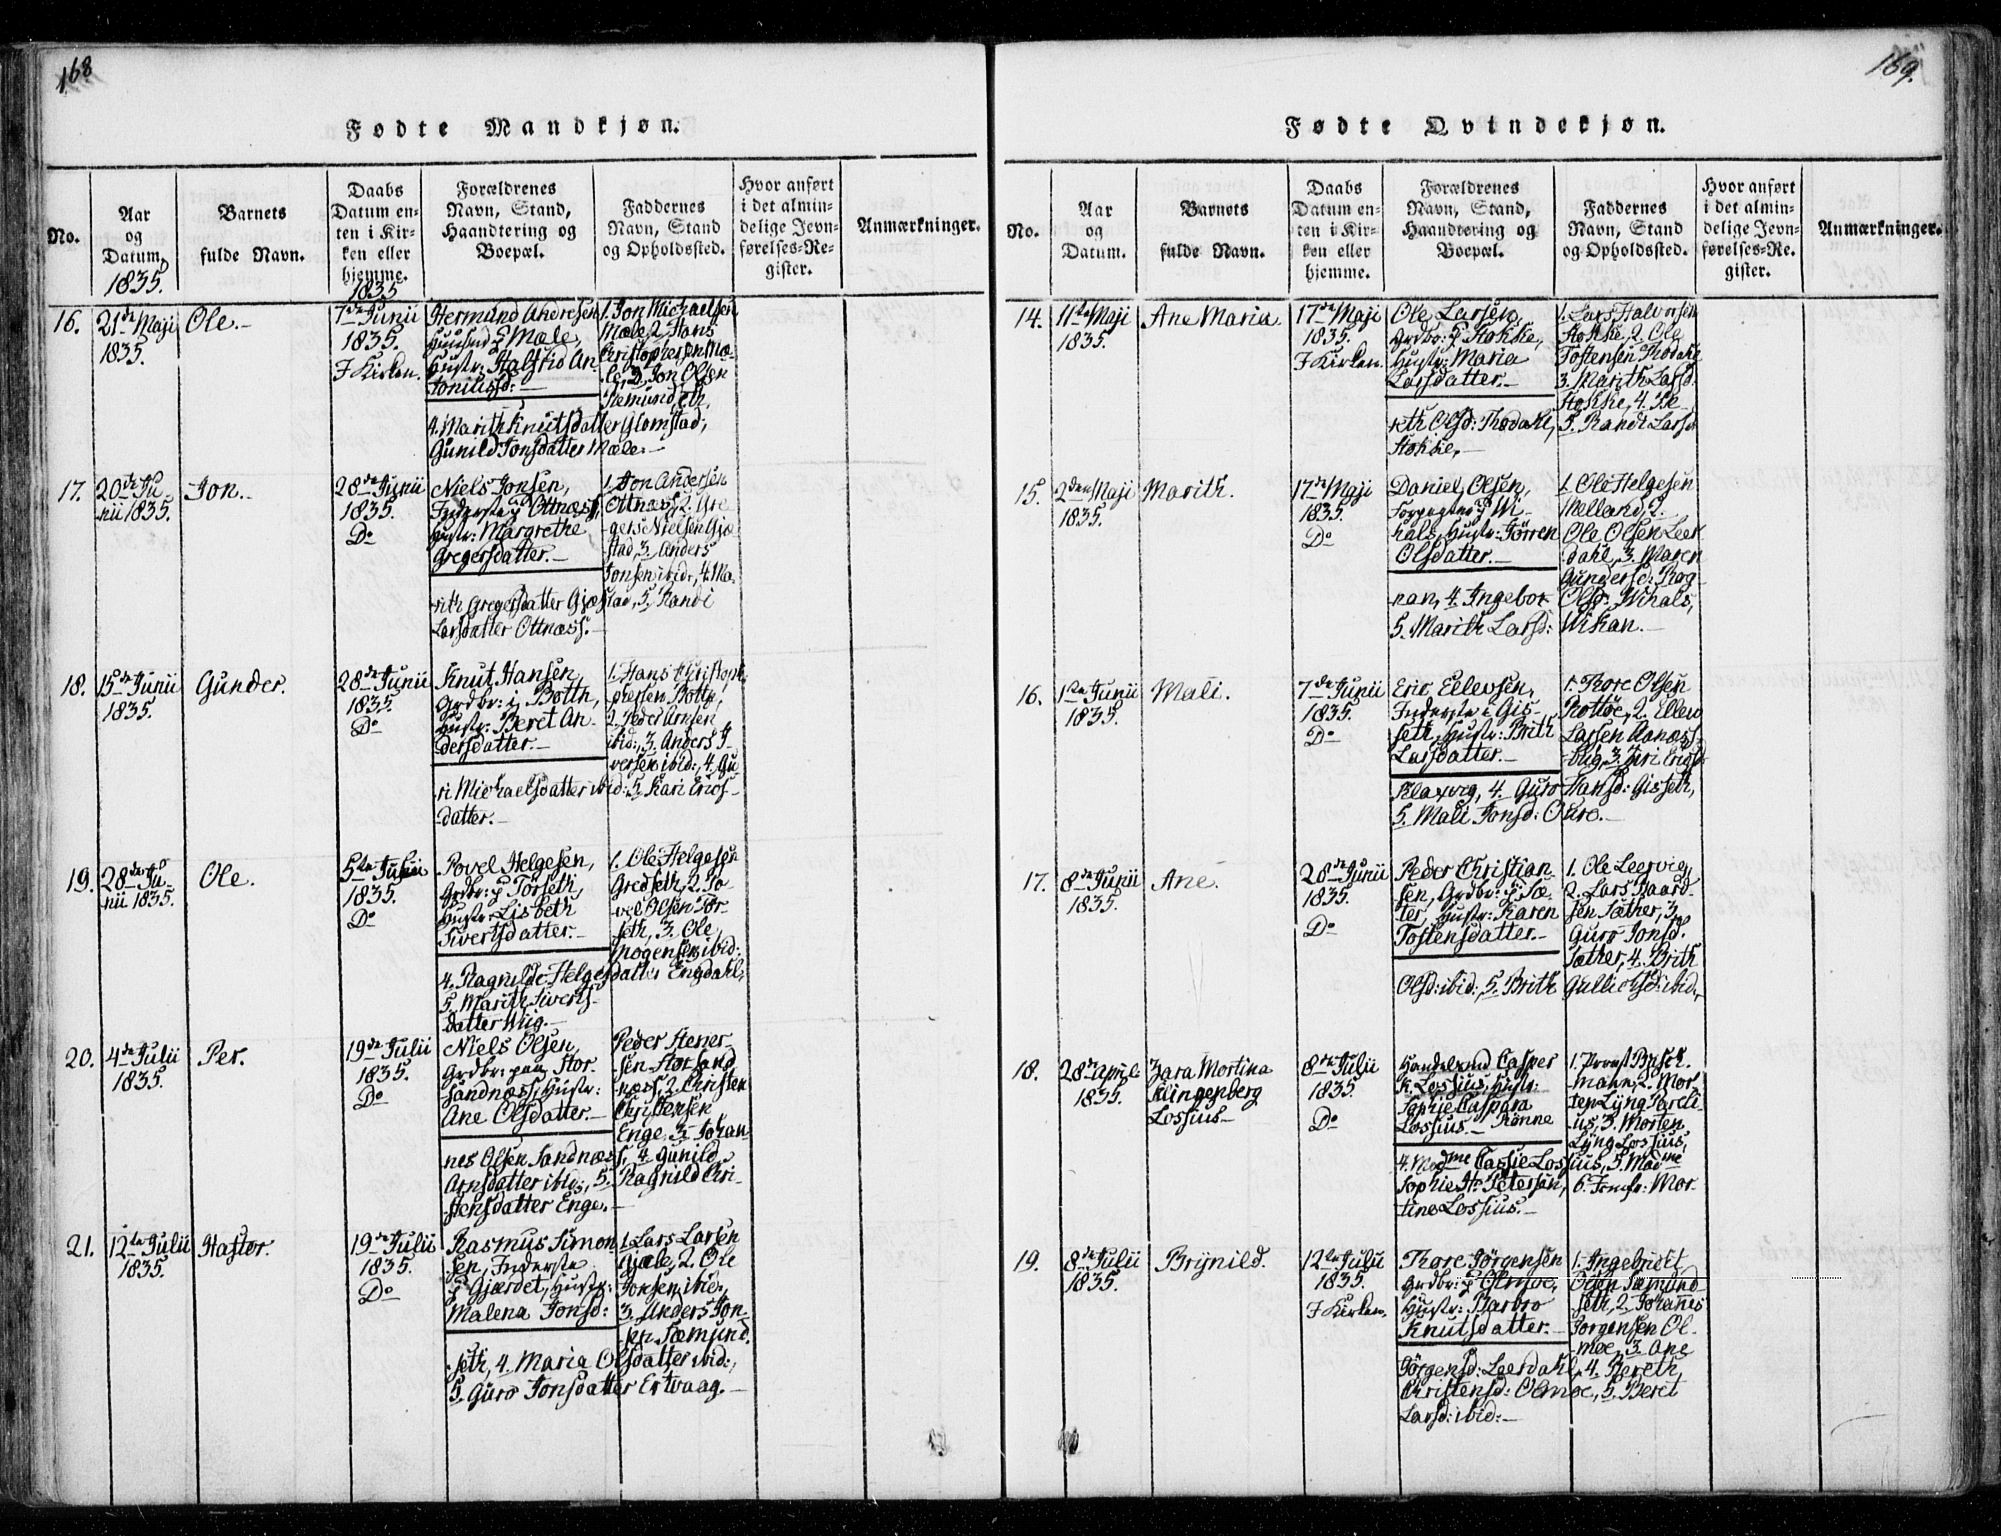 168
Fødte Mandkjøn.
No.
Aar
og
Datum.
1835.
Barnets
fulde Navn.
Daabs
Datum en-
ten i Kir-
ken eller
hjemme.
1835
Forældrenes
Navn, Stand,
Haandtering og
Boepæl.
Faddernes
Navn, Stand
og Opholdssted.
Hvor anført
i det almin-
delige Jevn-
førelses-Re-
gister.
Anmærkninger.
16.
21de Maji
1835.
Ole.
7de Junii
1835.
I Kirken.
Hermund Andresen
Huusmd p Mæle,
Hustr: Halstid An-
toniussd:
1. Jon Michaelsen
Mæle, 2. Hans
Christophersen Mæ-
le, 3. Jon Olsen
Sæmundseth,
4. Marith Knutsdatter Glomstad,
Gunild Jonsdatter Mæle.
17.
20de Ju-
nii 1835.
Jon.
28de Junii
1835.
Do
Niels Jonsen,
Inderste p Ottnæss,
Hustr: Margrethe
Gregersdatter.
1. Jon Andersen
Ottnæss, 2. Gre-
gerse Nielsen Gjæ-
stad, 3. Anders
Jonsen ibid:, 4. Ma-
rith Gregersdatter Gjæstad, 5. Randi
Larsdatter Ottnæss.
18.
15de Junii
1835.
Gunder.
28de Junii
1835
Do
Knut Hansen,
Grdbr: i Botth,
Hustr: Beret An-
dersdatter.
1. Hans Christoph-
phersen Botth,
2. Peder Arnsen
ibid:, 3. Anders I-
versen ibid:, 4. Gu-
ri Michaelsdatter ibid: 5. Kari Erics-
datter.
19.
28de Ju-
nii 1835.
Ole.
5te Julii
1835.
Do
Povel Helgesen,
Grdbr: p Tørseth,
Hustr: Lisbeth
Sivertsdatter.
1. Ole Helgesen
Gredseth, 2. Po-
vel Olsen Tør-
seth, 3. Ole
Mogensen ibid:
4. Ragnilde Helgesdatter Engdahl,
5. Marith Siverts-
datter Wiig.
20.
4de Julii
1835.
Per.
19de Julii
1835.
Do
Niels Olsen,
Grdbr: paa Stor-
sandnæss, Hustr:
Ane Olsdatter.
Peder Stener-
sen Storsand
næss, 2. Christen
Christensen
Enge, 3. Johan-
nes Olsen Sandnæss, 4. Gunild
Arnsdatter ibid:, 5. Ragnild Cri-
stensdatter Enge.
21.
12te Julii
1835.
Hastor.
19de Julii
1835.
Do
Rasmus Simon
sen, Inderste
p Gjærdet, Hustr:
Malena Jonsd:
1. Lars Larsen
Gjæle, 2. Ole
Jonsen ibid:,
3. Anders Jon-
sen Sæmund-
seth, 4. Maria Olsdatter ibid:,
5. Guro Jonsdatter Ertvaag.
169.
Fødte Qvindekjøn.
No.
Aar
og
Datum.
Barnets
fulde Navn.
Daabs
Datum en-
ten i Kir-
ken eller
hjemme.
Forældrenes
Navn, Stand,
Haandtering og
Boepæl.
Faddernes
Navn, Stand
og Opholdssted.
Hvor anført
i det almin-
delige Jevn-
førelses-Re-
gister.
Anmærkninger.
14.
11te Maji
1835.
Ane Maria.
17de Maji
1835.
I Kirken.
Ole Larsen,
Grdbr: p Stokke,
Hustr: Maria
Larsdatter.
1. Lars Halvorsen
Stokke, 2. Ole
Tostensen Thodahl
3. Marith Larsd:
Stokke, 4. Be
reth Olsd: Thodahl, 5. Randi Larsd:
Stokke.
15.
2den Maji
1835.
Marith.
17de Maji
1835.
Do
Daniel Olsen,
Forpagter p Wi-
hals, Hustr: Jørren
Olsdatter.
1. Ole Helgesen
Melland, 2.
Ole Olsen Leer
dahl, 3. Maren
Gundersd: Rog-
nan, 4. Ingebor- Olsd: Wihals,
5. Marith Larsd: Wikan.
16.
1ste Junii
1835.
Mali.
7de Junii
1835.
Do
Eric Ellevsen,
Inderste i Gis-
seth, Hustr: Brith
Larsdatter.
1. Thore Olsen
Rottøe, 2. Ellev
Larsen Aanæss-
bug, 3. Siri Ericsd:
Klaxvig, 4. Guro Hansd: Gisseth,
5. Mali Jonsd: Oure.
17.
8de Junii
1835.
Ane.
28de Junii
1835.
Do
Peder Christian-
sen, Grdbr: p Sæ-
ter, Hustr: Karen
Tostensdatter.
1. Ole Leervig,
2. Lars Baard
sen Sæther, 3.
Guro Jonsd.
Sæther, 4. Brith
Olsd: ibid:, 5. Brith Gulliksd: ibid:,
18.
28de April
1835.
Zara Martina
Klingenberg
Lossius
8de Julii
1835.
Do
Handelsmd Casper
K. Lossius, Hustr:
Sophie Caspara
Lossius. Rønne
1. Provst Busch-
mann, 2. Mor-
ten Lyng Pareli-
us, 3. Morten
Lyng Lossius,
4. Madme Cassie Lossius, 5. Madme
Sophie Hr. Petersen, 6. Jomfr: Mor-
tine Lossius.
19.
8de Julii
1835.
Brynild.
12te Julii
1835.
I Kirken.
Thore Jörgensen
Grdbr: p Olmoe,
Hustr: Barbro
Knutsdatter.
1. Ingebrictt
Olsen Sæmund
seth, 2. Johannes
Jorgensen Ol-
moe, 3. Ane
Jörgensd: Leerdahl, 4. Bereth
Christensd: Olmoe, 5. Beret
Larsd: ibid: